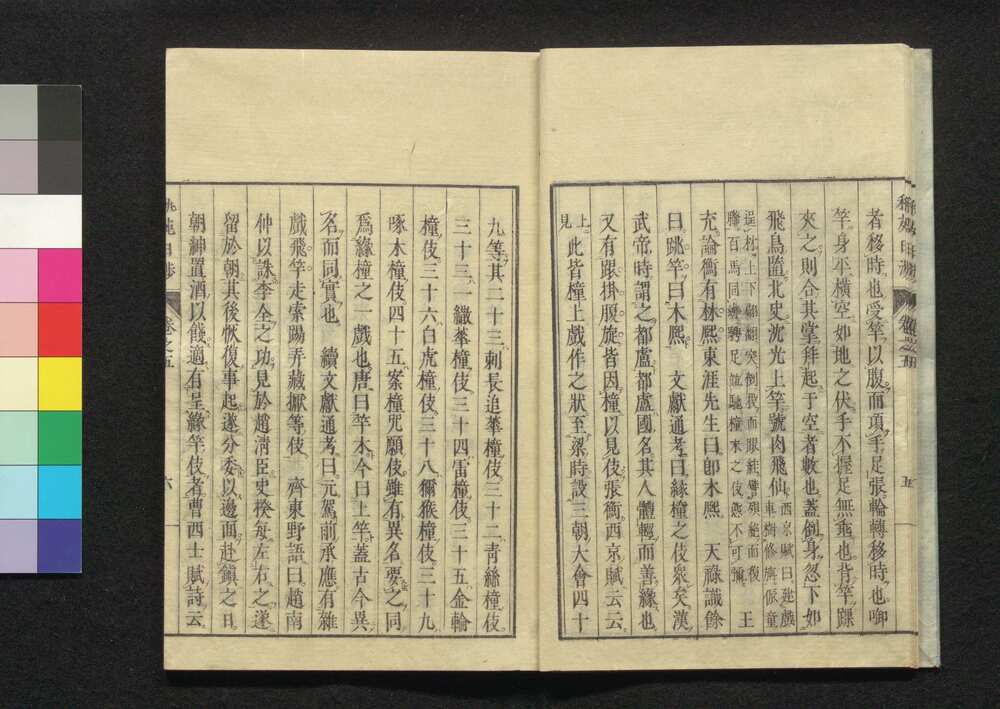 者移時也受竿以腹而項手足張輪轉移時也啣
竿身平橫空如地之伏手不握足無垂也背竿踝
夾之則合其掌拜起于空者數也蓋倒身忽下如
飛鳥墮北史沈光上竿號肉飛仙 西京賦曰建戲車樹修旃侲童
逞材上下翩翻突倒投而跟絓譬殞絕而復聯百馬同轡騁足並馳橦末之伎態不可彌 王
充論衡有材熙東涯先生曰卽木熙 天祿識餘
曰跳竿曰木熙 文獻通考曰緣橦之伎衆矣漢
武帝時謂之都盧都盧國名其人體輕而善緣也
又有跟掛腹旋皆因橦以見伎張衡西京賦云云
見上 此皆橦上戲作之狀至梁時設三朝大會四十
五
九等其二十三刺長追華橦伎三十二靑絲橦伎
三十三一繖華橦伎三十四雷橦伎三十五金輪
橦伎三十六白虎橦伎三十八獼猴橦伎三十九
啄木橦伎四十五案橦咒願伎雖有異名要之同
爲緣橦之一戲也唐曰竿木今曰上竿蓋古今異
名而同實也 續文獻通考曰元駕前承應有雜
戲飛竿走索踢弄藏擫等伎 齊東野語曰趙南
仲以誅李全之功見於趙淸臣史揆每左右之遂
留於朝其後恢復事起遂分委以邊面赴鎭之日
朝紳置酒以餞適有呈緣竿伎者曹西士賦詩云
卷之五
六